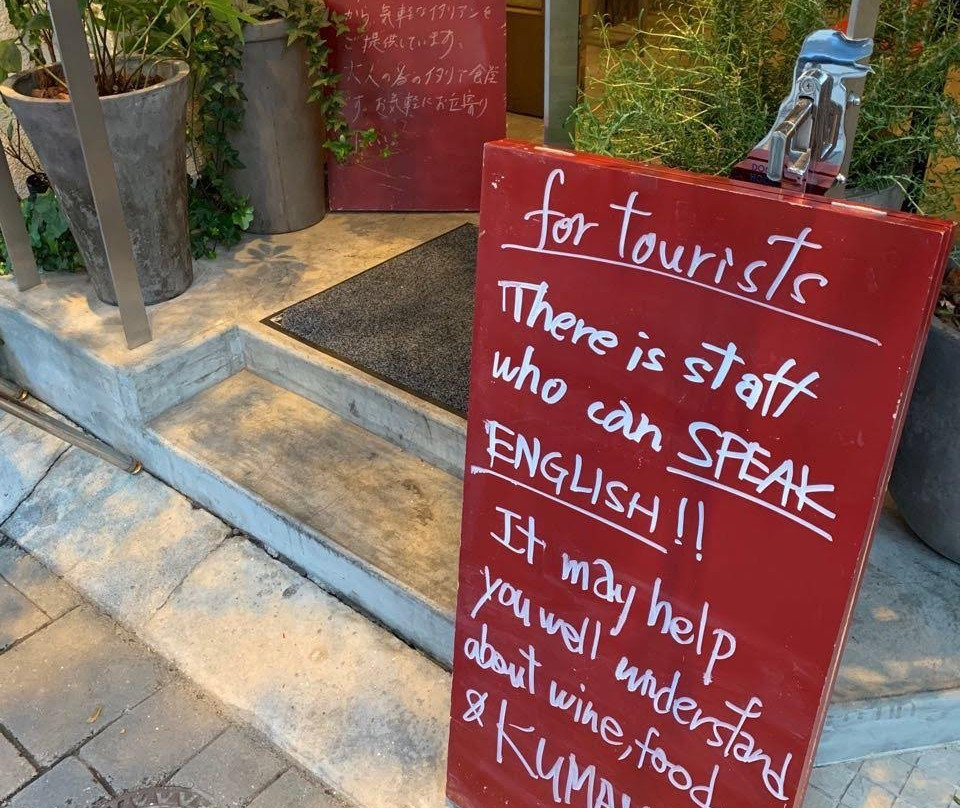 から、気軽なイタリアンを
ご提供しています。
大人の為のイタリア食堂
です。お気軽にお立寄り
for tourists
There is staff
who can SPEAK
ENGLISH!!
It may help
you well understand
about wine, food
& KUMA